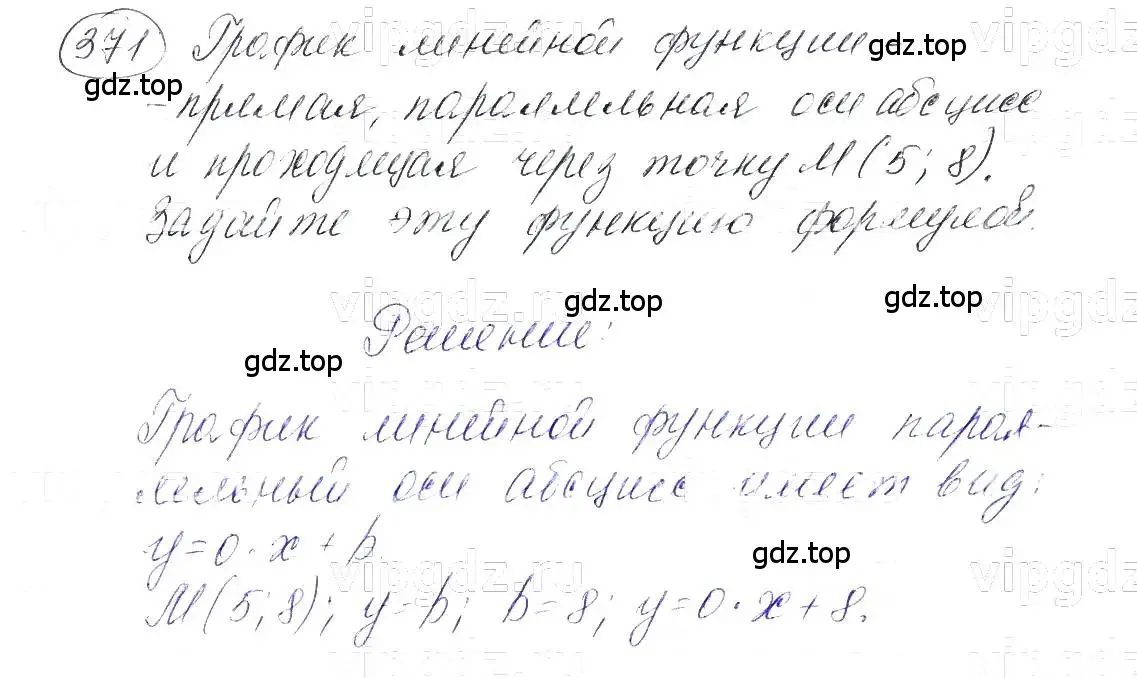 371 График линейной функции -
gdz.top
- прямая, параллельная оси абсцисс
и проходящая через точку M(5; 8).
Задайте эту функцию формулой.
vipgdz.ru
gdz.top
gdz.top
Решение:
gdz.top
График линейной функции парал-
лельный оси абсцисс имеет вид:
y=0·x+b.
gdz.top
vipgdz.ru
M(5; 8); y=b; b=8; y=0·x+8.